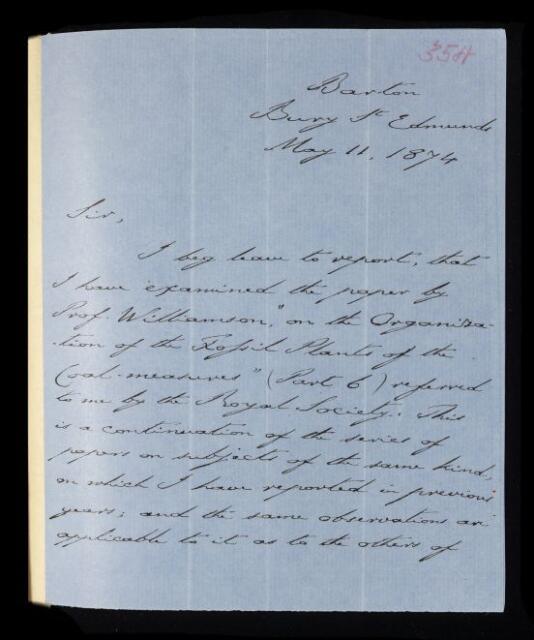 358
Barton
Bury St Edmunds
May 11, 1874
Sir,
I beg leave to report, that
I have examined the paper by
Prof. Williamson, "on the Organiza-
-tion of the Fossil Plants of the
Coal-measures" (Part 6) referred
to me by the Royal Society. This
is a continuation of the series of
papers on subjects of the same kind,
on which I have reported in previous
years; and the same observations are
applicable to it as to the others of